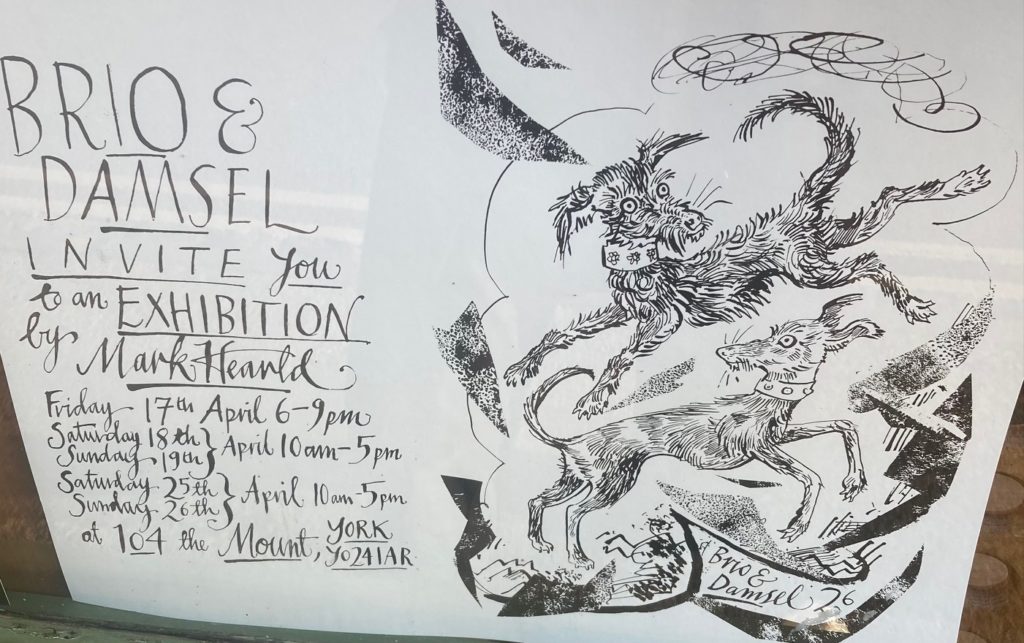 BRIO &
DAMSEL
INVITE you
to an EXHIBITION
by Mark Hearld
Friday 17th April 6-9pm
Saturday 18th } April 10am-5pm
Sunday 19th
Saturday 25th } April 10am-5pm
Sunday 26th
at 104 the Mount, YORK
YO24 1AR
Brio &
Damsel 26